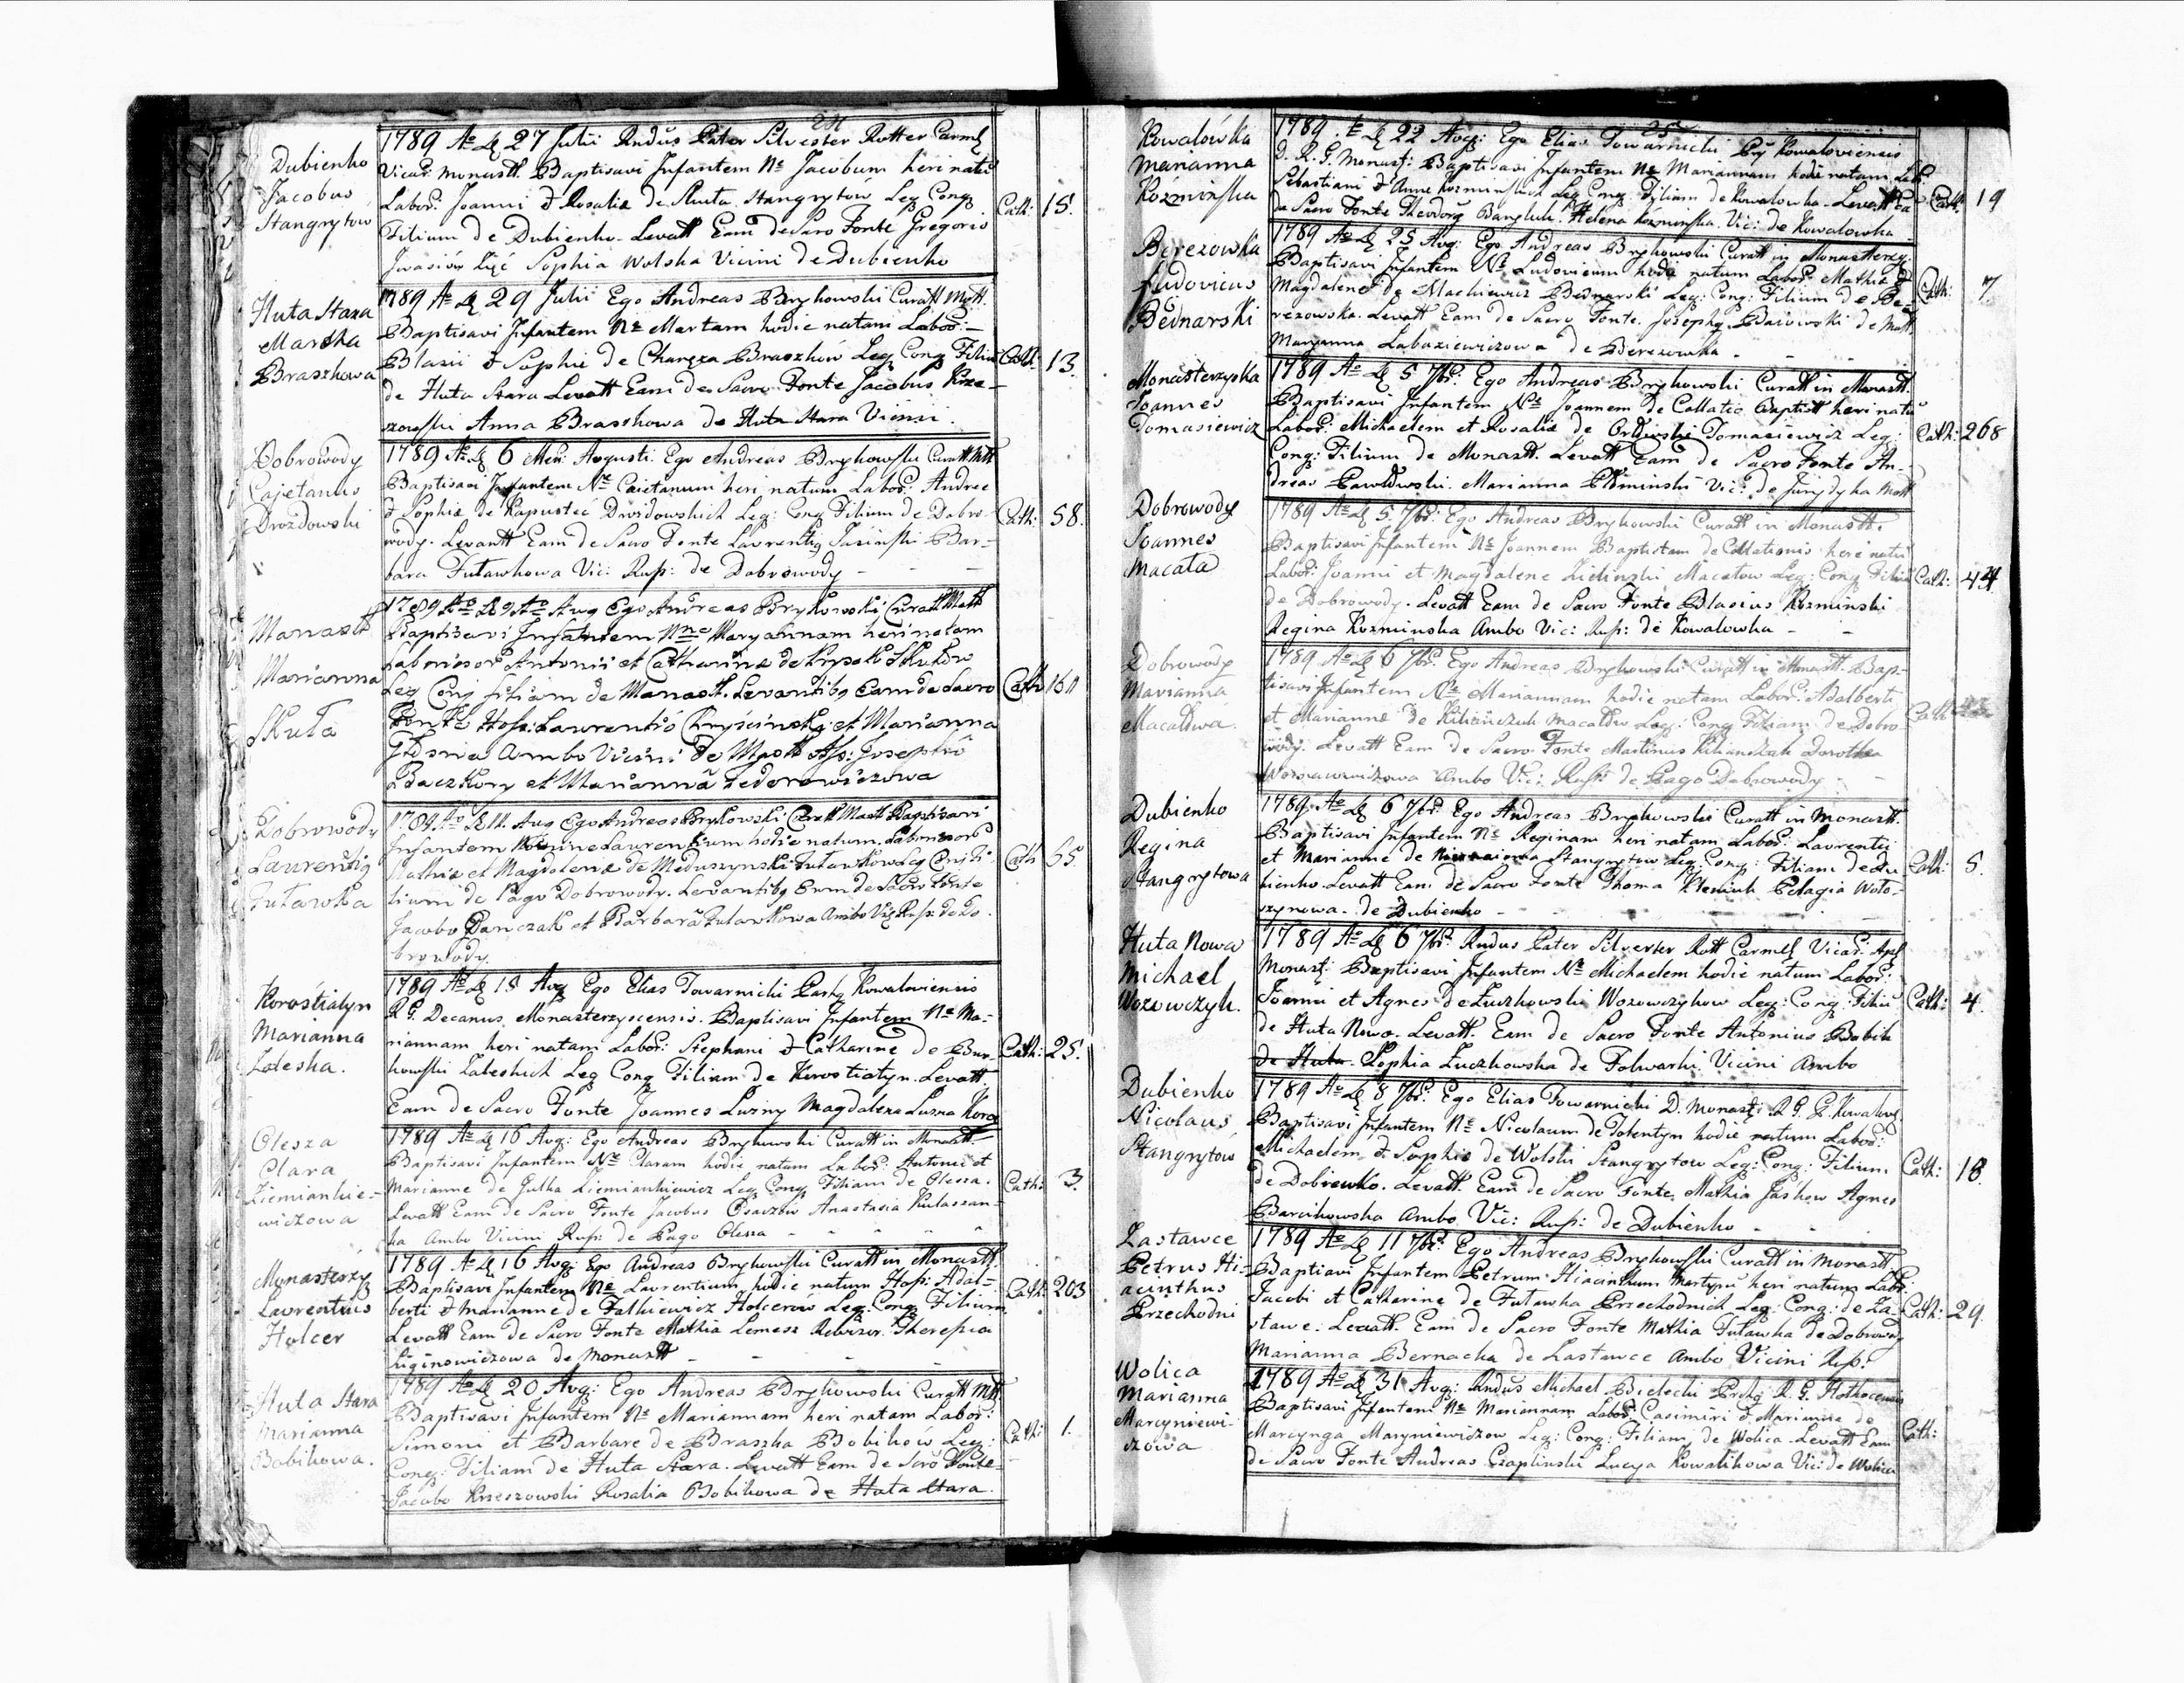 24
Dubienko
Jacobus
Stangrytów
1789 Ao D 27 Julii Rndus Pater Silvester Rotter Carml
Vicar: Monastt. Baptisavi Infantem Ne Jacobum heri natū
Labor: Joanni & Rosaliæ de Skuta Stangrytow Leg Conq
Filium de Dubienko. Levatt Eam de Sacro Fonte Gregoris
Sophia Wolska Vicini de Dubienko
Cath: 15.
Huta Stara
Martha
Braszkowa
1789 Ao D 29 Julii Ego Andreas Brykowski Curatt Mstt.
Baptisavi Infantem Ne Martam hodie natam Labor:
Blasii & Sophie de Braszków Leg Conq Filiā
de Huta Stara Levatt Eam de Sacro Fonte Jacobus Krze-
szowski Anna Braszkowa de Huta Stara Vicini
Cath: 13.
Dobrowody
Cajetanus
Drozdowski
1789 Ao D 6 Men: Augusti. Ego Andreas Brykowski Curatt Mtt
Baptisavi Infantem Ne Caietanum heri natum Labor: Andree
& Sophiæ de Kapusteć Drozdowskich Leg: Conq Filium de Dobro-
wody. Levantt Eam de Sacro Fonte Laurentig Jasinski Bar-
bara Futawkowa Vic: Rup: de Dobrowody
Cath: 58.
Monastt
Marianna
Skuta
1789 Ao D 9 Ao Aug Ego Andreas Brykowski Curatt Mstt
Baptisavi Infantem Nne Maryannam heri natam
Laboriosor Antonii et Catharinæ de Skutów
Leg Conj filiam de Monast. Levantibg Eam de Sacro
Fonte Hon: Laurentió et Marianna
Ambo Vicini de Mastt Ass: Josephó
et Marianna Fedorowiczowa
Cath
Dobrowody
Laurentig
Futawka
1789 Ao D 11. Aug Ego Andreas Brykowski Curatt Mastt Baptisavi
Infantem Nomine Laurentium hodie natum. Laboriosor
Mathiæ et Magdalenæ de Meduszynski Futawkow Leg Conj Fi-
lium de Pago Dobrowody. Levantibg Eum de Sacro Fonte
Jacobo Panczak et Barbara Futawkowa Ambo Vic Rusp: de Do-
browody.
Cath 55.
Korościatyn
Marianna
Zaleska.
1789 Ao D 15 Avg Ego Elias Towarnicki Paoh Kowaloviensis
R G. Decanus Monasterzyscensis. Baptisavi Infantem Ne Ma-
riannam heri natam Labor: Stephani & Catharine de Bur-
kowski Zaleskich Leg Conq Filiam de Korostiatyn. Levatt
Eam de Sacro Fonte Joannes Luzny Magdalena Luzna
Cath: 25.
Olesza
Clara
Ziemiankie-
wiczowa
1789 Ao D 16 Avg: Ego Andreas Brykowski Curatt in Monastt.
Baptisavi Infantem Ne Claram hodie natam Labor: Antonii et
Marianne de Julka Ziemiankiewicz Leg Conq Filiam de Olesza.
Levatt Eam de Sacro Fonte Jacobus Anastasia
ka Ambo Vicini Rusp: de Pago Olesza
Cath: 3.
Monasterzy
Laurentius
Holcer
1789 Ao D 16 Avg: Ego Andreas Brykowski Curatt in Monastt.
Baptisavi Infantem Ne Laurentium hodie natum Hosp: Adal-
berti & Marianne de Falkiewicz Holcerów Leg: Conq Filium
Levatt Eam de Sacro Fonte Mathia Lemesz Theresia
de Monastt
Cath: 203
Huta Stara
Marianna
Bobikowa.
1789 Ao D 20 Avg: Ego Andreas Brykowski Curatt Mtt.
Baptisavi Infantem Ne Mariannam heri natam Labor:
Simoni et Barbare de Braszka Bobików Leg:
Conq: Filiam de Huta Stara. Levatt Eam de Scro Fonte
Jacobo Krzeszowski Rosalia Bobikowa de Huta Stara.
Cath: 1.
25
Kowalówka
Marianna
Kozminska
1789 Ao D 22 Avg: Ego Elias Towarnicki Kowaloviensis
D. R. G. Monast: Baptisavi Infantem Ne Mariannam hodie natam Lab.
Sebastiani & Anne Kozminskich Leg Conq: Filiam de Kowalowka. Levatt Ea
de Sacro Fonte Theodorg Helena Kozminska Vic: de Kowalowka
Cath: 19
Berezowska
Ludovicus
Bednarski
1789 Ao D 25 Avg: Ego Andreas Brykowski Curatt in Monasterzy:
Baptisavi Infantem Ne Ludovicum hodie natum Labor: Mathiæ &
Magdalene de Mackiewicz Bednarski Leg: Conq: Filium de Be-
rezowska. Levatt Eam de Sacro Fonte. Josephg de Mstt
Maryanna Labaziewiczowa de Berezowka
Cath: 7
Monasterzyska
Joannes
Tomasiewicz
1789 Ao D 5 7br: Ego Andreas Brykowski Curatt in Monastt.
Baptisavi Infantem Ne Joannem de Collatio Baptist heri natū
Labor: Michaelem et Rosaliæ de Tomasiewicz Leg:
Conq: Filium de Monastt. Levatt Eam de Sacro Fonte An-
dreas Pawłowski. Marianna Vic: de Jurydyka Mstt
Cath: 268
Dobrowody
Joannes
Macała
1789 Ao D 5. 7br: Ego Andreas Brykowski Curatt in Monastt.
Baptisavi Infantem Ne Joannem Baptistam de Collationis heri natū
Labor: Joanni et Magdalene Zielinski Macałow Leg: Conq Filiū
de Dobrowody. Levatt Eam de Sacro Fonte Blasius Kozminski
Regina Kozminska Ambo Vic: Rup: de Kowalowka
Cath: 44
Dobrowody
Marianna
Macałowa.
1789 Ao D 6 7br. Ego Andreas Brykowski Curatt in Monastt. Bap-
tisavi Infantem Ne Mariannam hodie natam Labor: Adalberti
et Marianne de Kilianczuk Macałów Leg: Conq Filiam de Dobro-
wody. Levatt Eam de Sacro Fonte Martinus Kilianczuk Dorothea
Ambo Vic: Rusp: de Pago Dobrowody
Cath
Dubienko
Regina
Stangrytowa
1789 Ao D 6 7br. Ego Andreas Brykowski Curatt in Monastt.
Baptisavi Infantem Ne Reginam heri natam Labor: Laurentii
et Marianne de Stangrytow Leg: Conq: Filiam de Du-
bienko. Levatt Eam de Sacro Fonte Thoma Pelagia Woło-
szynowa. de Dubienko
Cath: 5.
Huta Nowa
Michael
Wozowczyk.
1789 Ao D 6 7br: Rndus Pater Silvester Rott Carmel Vicar: Apl
Monast: Baptisavi Infantem Ne Michaelem hodie natum Labor:
Joannii et Agnes de Luczkowski Wozowczykow Leg: Conq: Filiū
de Huta Nowa. Levatt. Eam de Sacro Fonte Antonius Bobik
de Huta Sophia Luczkowska de Folwarki Vicini Ambo
Cath: 4.
Dubienko
Nicolaus
Stangrytów
1789 Ao D 8 7br. Ego Elias Towarnicki D. Monast: R G. P. Kowalow
Baptisavi Infantem Ne Nicolaum de Tolentyn hodie natum Labor:
Michaelem & Sophiæ de Wolski Stangrytow Leg: Conq: Filium
de Dobienko. Levatt. Eam de Sacro Fonte. Mathia Jaskow Agnes
Barcikowska Ambo Vic: Rup: de Dubienko
Cath: 18.
Zastawce
Petrus Hi-
acinthus
Przechodni
1789 Ao D 11 7br: Ego Andreas Brykowski Curatt in Monastt.
Baptiavi Infantem Petrum Hiacinthum Martyru heri natum Labr:
Jacobi et Catharine de Futawka Przechodnich Leg: Conq: de Za-
stawce. Levatt. Eam de Sacro Fonte Mathia Futawka de Dobrowody
Marianna Bernacka de Zastawce Ambo Vicini Rup:
Cath: 29.
Wolica
Marianna
Marcyniewi-
czowa
1789 Ao D 31 Avg: Rndus Michael Bielecki R. G.
Baptisavi Infantem Ne Mariannam Labor: Casimiri & Marianne de
Marcynga Marcyniewiczow Leg: Conq: Filiam de Wolica Levatt Eam
de Sacro Fonte Andreas Czaplinski Lucya Kowalikowa Vic: de Wolica
Cath: